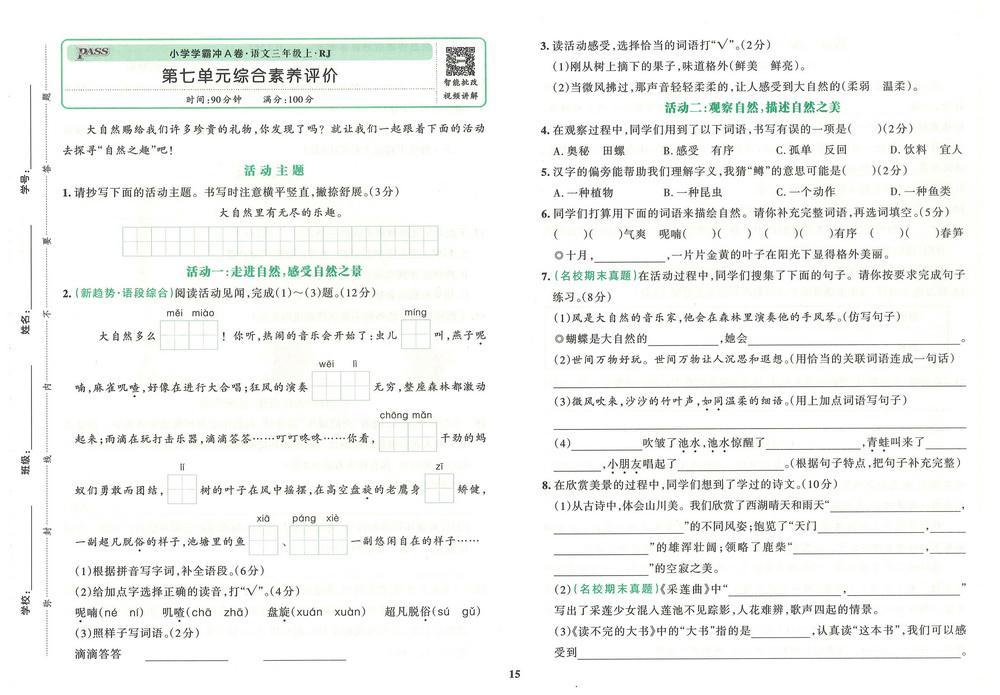 PASS
小学学霸冲A卷·语文三年级上·RJ
第七单元综合素养评价
时间:90分钟 满分:100分
智能批改
视频讲解
学号:
姓名:
班级:
学校:
题
答
要
不
内
线
封
弥
大自然赐给我们许多珍贵的礼物,你发现了吗? 就让我们一起跟着下面的活动
去探寻“自然之趣”吧!
活动主题
1.请抄写下面的活动主题。书写时注意横平竖直,撇捺舒展。(3分)
大自然里有无尽的乐趣。
活动一:走进自然,感受自然之景
2.(新趋势·语段综合)阅读活动见闻,完成(1)~(3)题。(12分)
měi miào míng
大自然多么 ! 你听,热闹的音乐会开始了:虫儿 叫,燕子呢
wēi lì
喃,麻雀叽喳,好像在进行大合唱;狂风的演奏 无穷,整座森林都激动
chōng mǎn
起来;雨滴在玩打击乐器,滴滴答答……叮叮咚咚……你看, 干劲的蚂
lì zī
蚁们勇敢而团结, 树的叶子在风中摇摆,在高空盘旋的老鹰身 矫健,
xiā páng xiè
一副超凡脱俗的样子,池塘里的鱼 、 一副悠闲自在的样子……
(1)根据拼音写字词,补全语段。(6分)
(2)给加点字选择正确的读音,打“√”。(4分)
呢喃(né ní) 叽喳(chā zhā) 盘旋(xuán xuàn) 超凡脱俗(sú gǔ)
(3)照样子写词语。(2分)
滴滴答答 ________ ________
3.读活动感受,选择恰当的词语打“√”。(2分)
(1)刚从树上摘下的果子,味道格外(鲜美 鲜亮)。
(2)当微风拂过,那声音轻轻柔柔的,让人感受到大自然的(柔弱 温柔)。
活动二:观察自然,描述自然之美
4.在观察过程中,同学们用到了以下词语,书写有误的一项是( )(2分)
A.奥秘 田螺 B.感受 有序 C.孤单 反回 D.饮料 宜人
5.汉字的偏旁能帮助我们理解字义,我猜“鳟”的意思可能是( )(2分)
A.一种植物 B.一种昆虫 C.一个动作 D.一种鱼类
6.同学们打算用下面的词语来描绘自然。请你补充完整词语,再选词填空。(5分)
( )( )气爽 呢喃( )( ) ( )( )有序 ( )( )春笋
◎十月,________,一片片金黄的叶子在阳光下显得格外美丽。
7.(名校期末真题)在活动过程中,同学们搜集了下面的句子。请你按要求完成句子
练习。(8分)
(1)风是大自然的音乐家,他会在森林里演奏他的手风琴。(仿写句子)
◎蝴蝶是大自然的________,她会________。
(2)世间万物好玩。世间万物让人沉思和遐想。(用恰当的关联词语连成一句话)
(3)微风吹来,沙沙的竹叶声,如同温柔的细语。(用上加点词语写句子)
(4)________吹皱了池水,池水惊醒了________,青蛙叫来了________
________,小朋友唱起了________。(根据句子特点,把句子补充完整)
8.在欣赏美景的过程中,同学们想到了学过的诗文。(10分)
(1)从古诗中,体会山川美。我们欣赏了西湖晴天和雨天“________,
________”的不同风姿;饱览了“天门________,
________”的雄浑壮阔;领略了鹿柴“________,
________”的空寂之美。
(2)(名校期末真题)《采莲曲》中“________,________”
写出了采莲少女混入莲池不见踪影,人花难辨,歌声四起的情景。
(3)《读不完的大书》中的“大书”指的是________,认真读“这本书”,我们可以感
受到________。
15